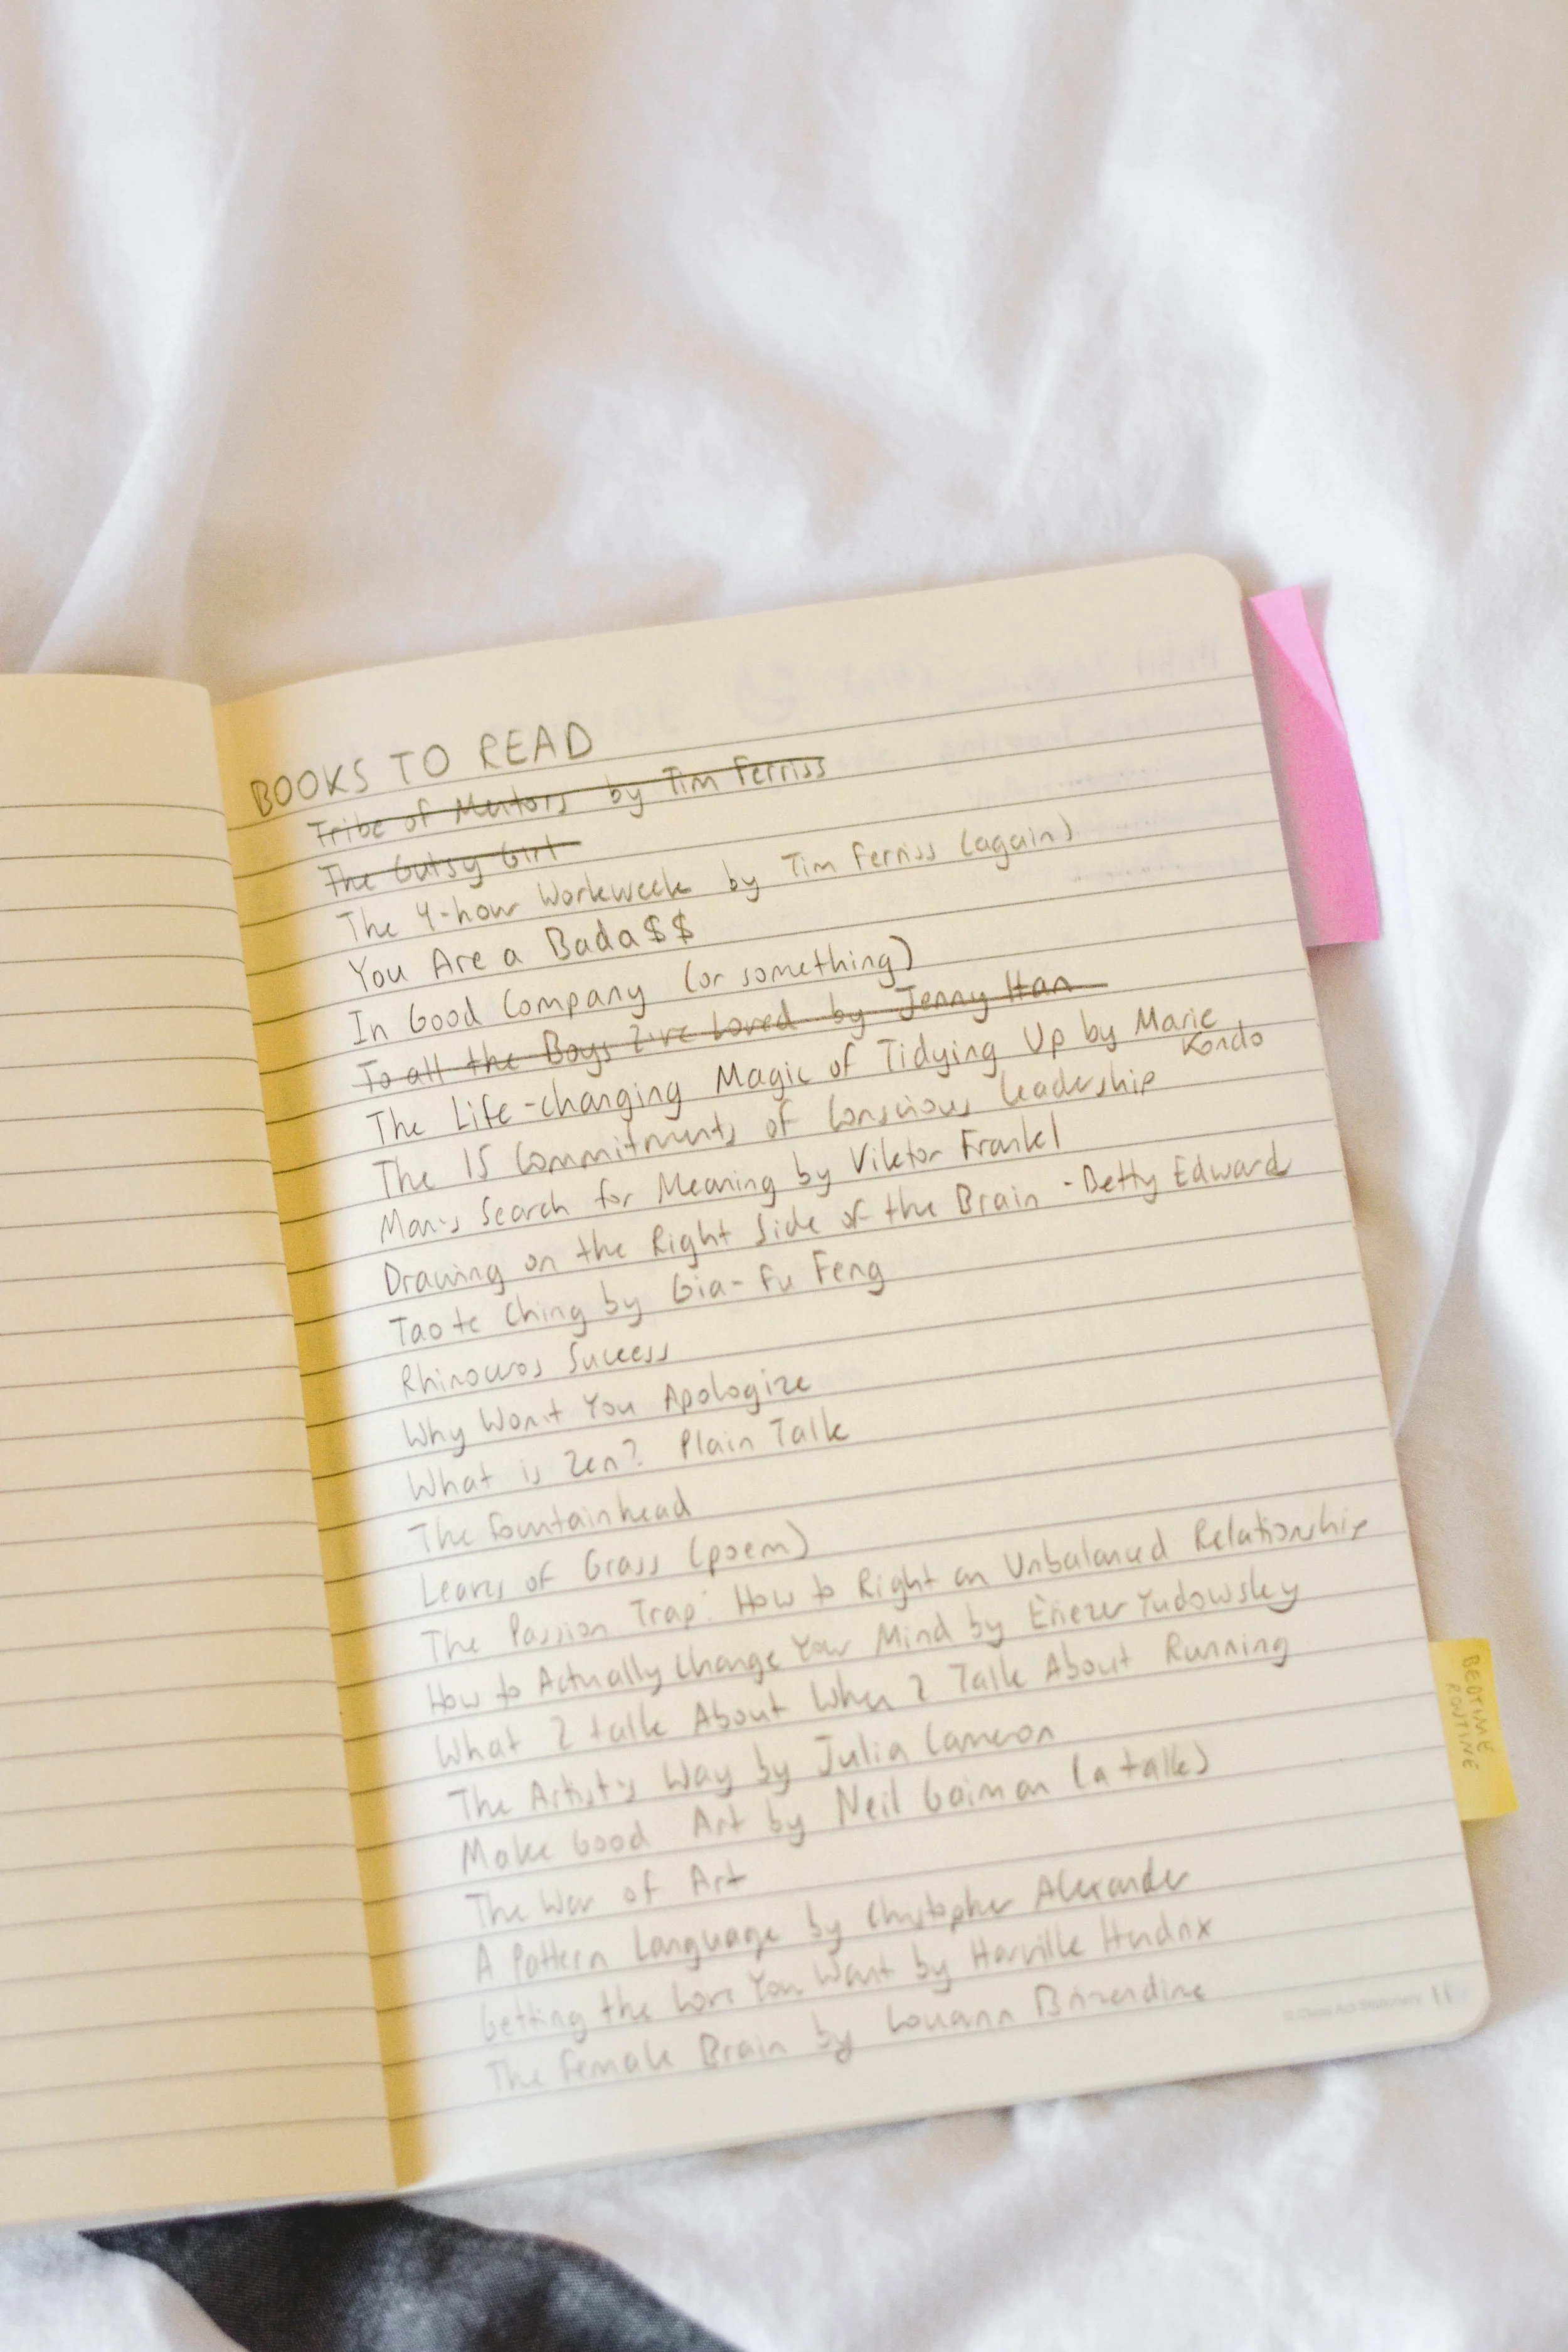 BOOKS TO READ
Tribe of Mentors by Tim Ferriss
The Gutsy Girl
The 4-hour Workweek by Tim Ferriss (again)
You Are a Bada$$
In Good Company (or something)
To all the Boys I've Loved by Jenny Han
The Life-changing Magic of Tidying Up by Marie
Kondo
The 15 Commitments of Conscious Leadership
Man's Search for Meaning by Viktor Frankl
Drawing on the Right Side of the Brain - Betty Edward
Tao te Ching by Gia-Fu Feng
Rhinoceros Success
Why Won't You Apologize
What is Zen? Plain Talk
The Fountainhead
Leaves of Grass (poem)
The Passion Trap: How to Right an Unbalanced Relationship
How to Actually Change Your Mind by Eliezer Yudowsky
What I talk About When I Talk About Running
The Artist's Way by Julia Cameron
Make Good Art by Neil Gaiman (a talk)
The War of Art
A Pattern Language by Christopher Alexander
Getting the Love You Want by Harville Hendrix
The Female Brain by Louann Brizendine
11
BEDTIME
ROUTINE